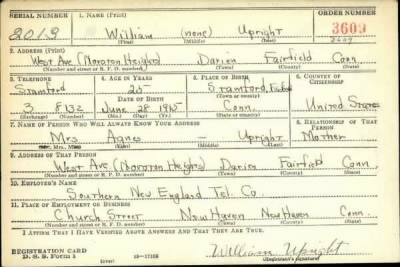 SERIAL NUMBER 1. NAME (Print) ORDER NUMBER
2013 William (none) Upright 3609
(First) (Middle) (Last) 2609
2. ADDRESS (Print)
West Ave (Noroton Heights) Darien Fairfield Conn.
(Number and street or R. F. D. number) (Town) (County) (State)
3. TELEPHONE 4. AGE IN YEARS 5. PLACE OF BIRTH 6. COUNTRY OF CITIZENSHIP
Stamford 25 Stamford, Fairfield
DATE OF BIRTH (Town or county)
3 8132 June 28 1915 Conn. United States
(Exchange) (Number) (Mo.) (Day) (Yr.) (State or country)
7. NAME OF PERSON WHO WILL ALWAYS KNOW YOUR ADDRESS 8. RELATIONSHIP OF THAT PERSON
Mrs Agnes – Upright Mother
(Mr., Mrs., Miss) (First) (Middle) (Last)
9. ADDRESS OF THAT PERSON
West Ave. (Noroton Heights) Darien Fairfield Conn.
(Number and street or R. F. D. number) (Town) (County) (State)
10. EMPLOYER'S NAME
Southern New England Tel. Co.
11. PLACE OF EMPLOYMENT OR BUSINESS
Church Street New Haven New Haven Conn.
(Number and street or R. F. D. number) (Town) (County) (State)
I AFFIRM THAT I HAVE VERIFIED ABOVE ANSWERS AND THAT THEY ARE TRUE.
REGISTRATION CARD
D. S. S. Form 1 (over) 16—17105 William Upright
(Registrant's signature)